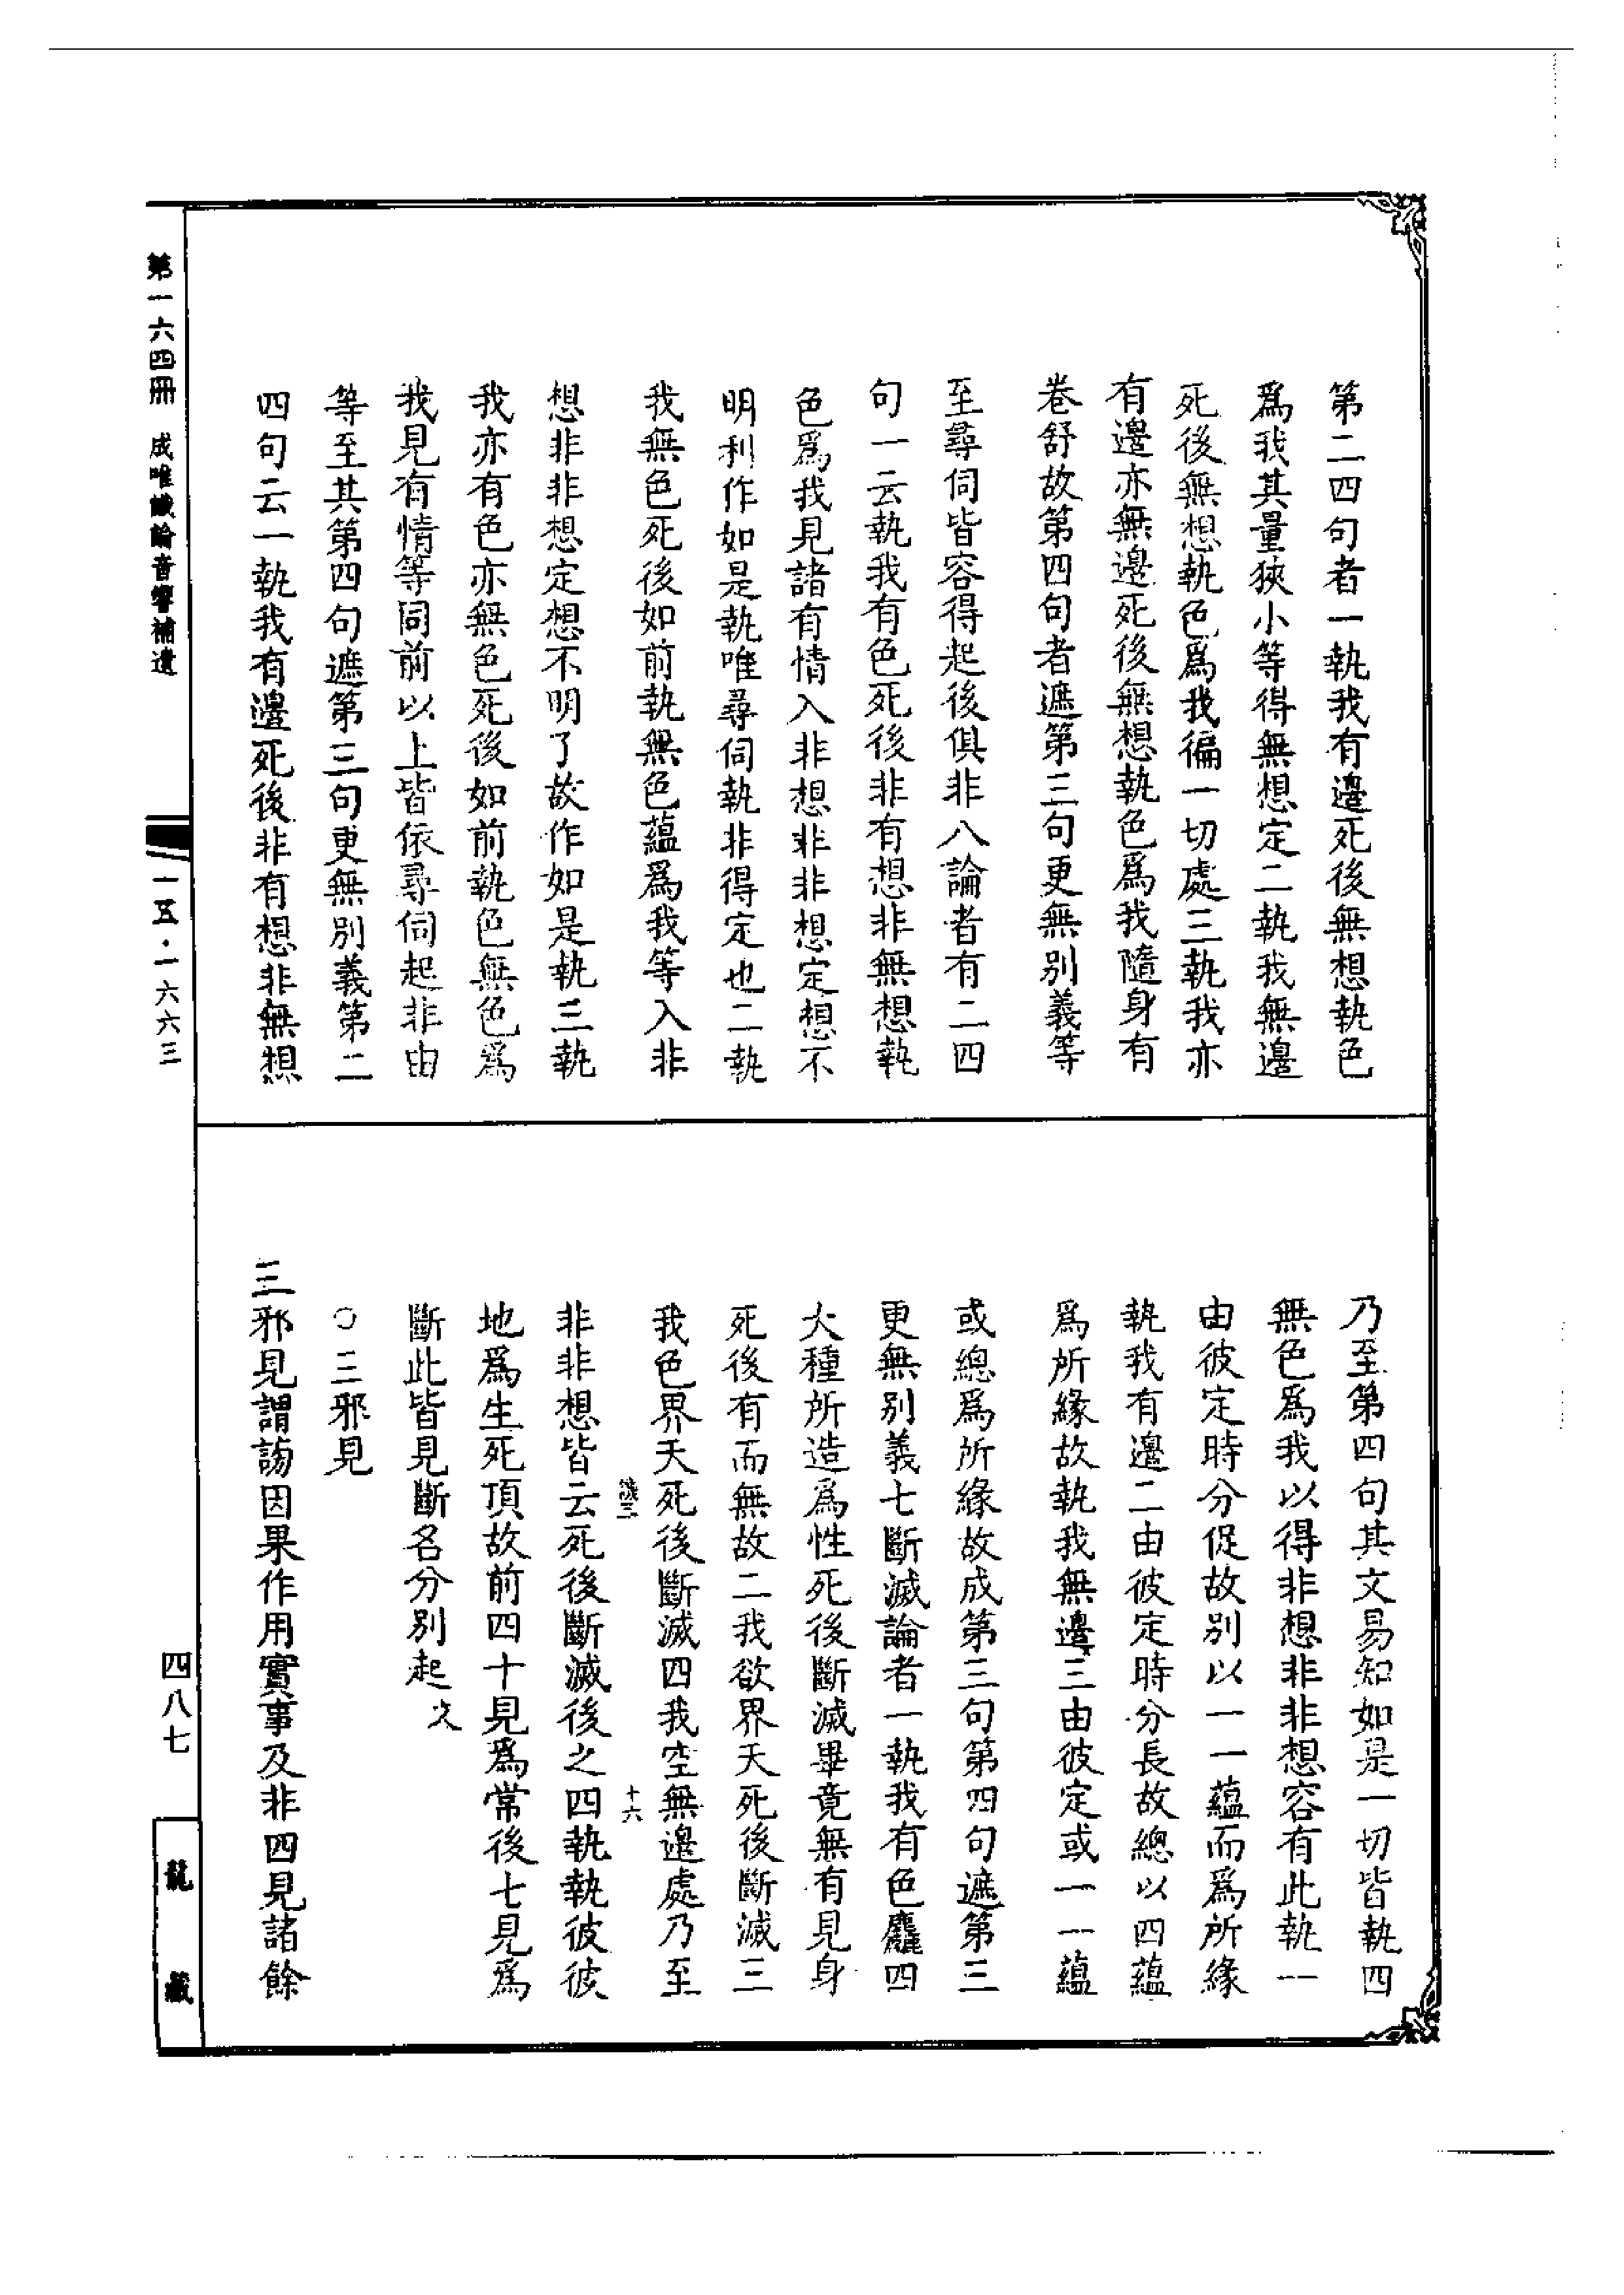 第二四句者一執我有邊死後無想執色
爲我其量狹小等得無想定二執我無邊
死後無想執色爲我徧一切處三執我亦
有邊亦無邊死後無想執色爲我隨身有
卷舒故第四句者遮第三句更無別義等
至尋伺皆容得起後俱非八論者有二四
句一云執我有色死後非有想非無想執
色爲我見諸有情入非想非非想定想不
明利作如是執唯尋伺執非得定也二執
我無色死後如前執無色蘊爲我等入非
想非非想定想不明了故作如是執三執
我亦有色亦無色死後如前執色無色爲
我見有情等同前以上皆依尋伺起非由
等至其第四句遮第三句更無別義第二
四句云一執我有邊死後非有想非無想
乃至第四句其文易知如是一切皆執四
無色爲我以得非想非非想容有此執一
由彼定時分促故別以一一蘊而爲所緣
執我有邊二由彼定時分長故總以四蘊
爲所緣故執我無邊三由彼定或一一蘊
或總爲所緣故成第三句第四句遮第三
更無別義七斷滅論者一執我有色麤四
大種所造爲性死後斷滅畢竟無有見身
死後有而無故二我欲界天死後斷滅三
我色界天死後斷滅四我空無邊處乃至
非非想皆云死後斷滅後之四執執彼彼
地爲生死頂故前四十見爲常後七見爲
斷此皆見斷名分別起
〇三邪見
三邪見謂謗因果作用實事及非四見諸餘
第一六四冊 成唯識論音響補遺
一五·一六六三
四八七
龍藏
十六